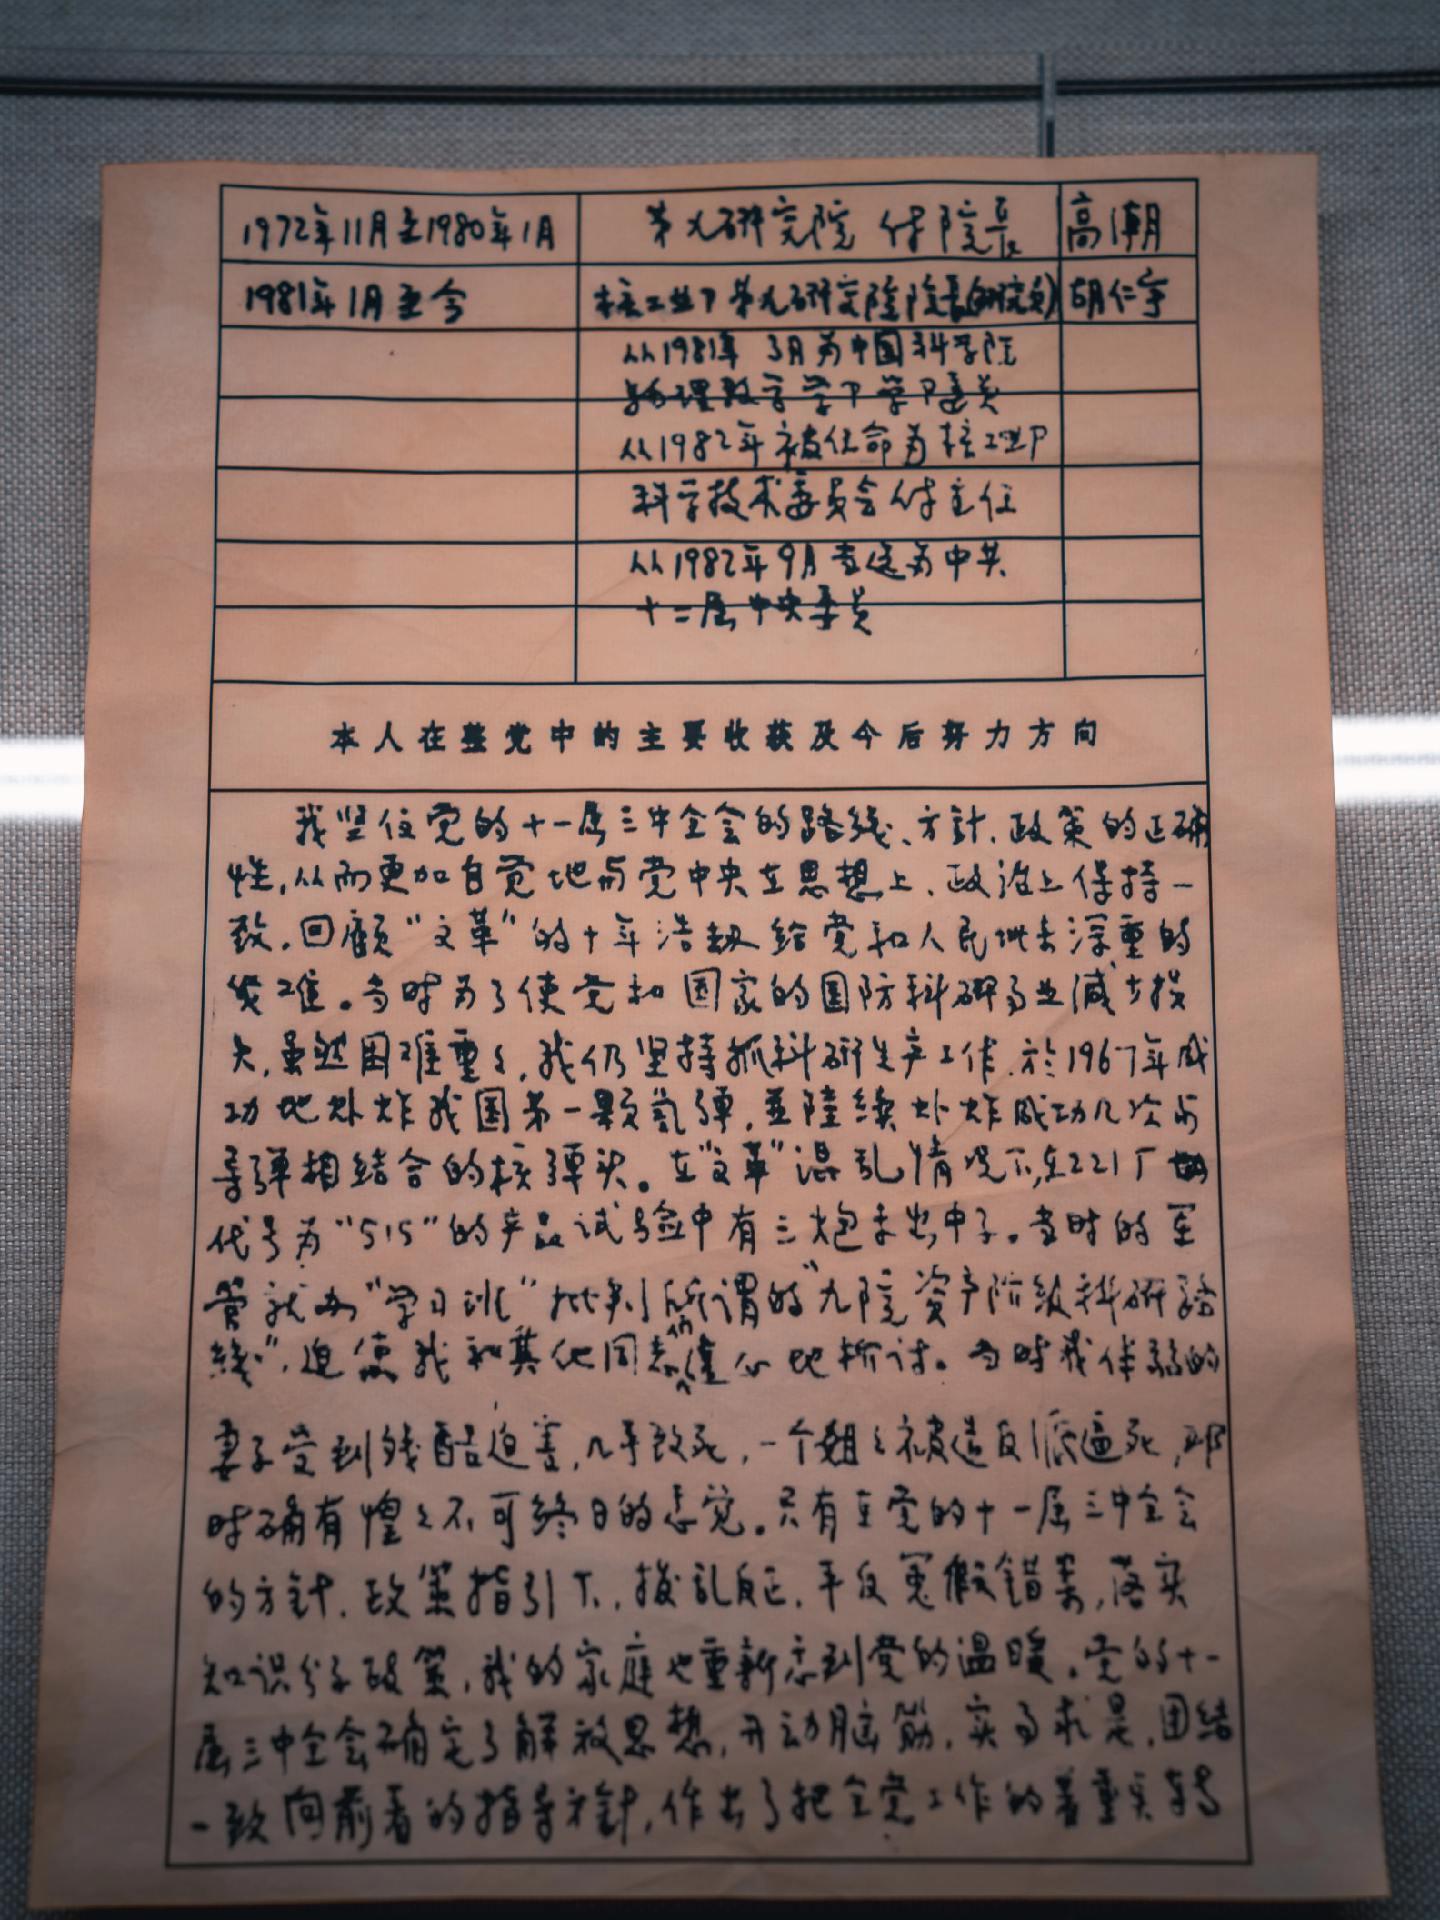 1972年11月至1980年1月 第九研究院 付院長 高潮
1981年1月至今 核工业部第九研究院院長(研究员) 胡仁宇
从1981年3月为中国科学院
物理数学学部学部委员
从1982年被任命为核工业部
科学技术委员会付主任
从1982年9月当选为中共
十二届中央委员
本人在整党中的主要收获及今后努力方向
我坚信党的十一届三中全会的路线、方針、政策的正确
性,从而更加自觉地与党中央在思想上、政治上保持一
致。回顾“文革”的十年浩劫给党和人民带来深重的
灾难。当时为了使党和国家的国防科研事业减少损
失,虽然困难重々,我仍坚持抓科研生产工作,於1967年成
功地爆炸我国第一颗氢弹,並陸续爆炸成功几次与
导弹相结合的核弹头。在“文革”混乱情况下,在221厂
代号为“515”的产品试验中有三炮未出中子。当时的军
管就办“学习班”批判所谓的“九院资产阶级科研路
线”,迫使我和其他同志们违心地检讨。当时我体弱的
妻子受到残酷迫害,几乎致死,一个姐々被造反派逼死,那
时确有惶々不可终日的感觉。只有在党的十一届三中全会
的方針、政策指引下,拨乱反正,平反冤假错案,落实
知识分子政策,我的家庭也重新感到党的温暖。党的十一
届三中全会确定了解放思想,开动脑筋,实事求是,团结
一致向前看的指导方針,作出了把全党工作的着重点转